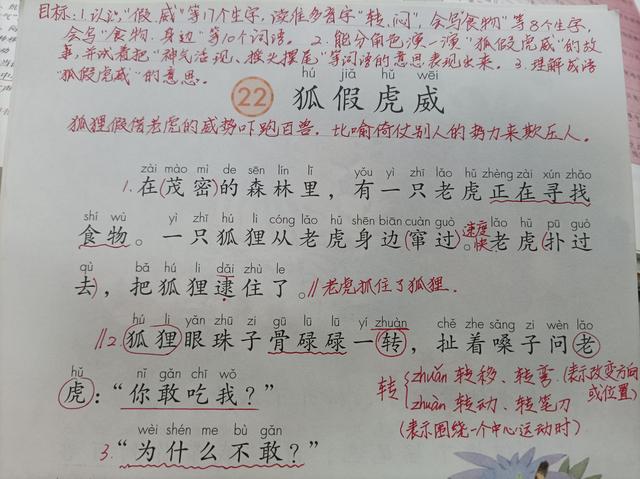 目标:1.认识"假、威"等17个生字,读准多音字"转、闷",会写"食物"等8个生字,
会写"食物、身边"等10个词语。 2.能分角色演一演"狐假虎威"的故
事,并试着把"神气活现、摇头摆尾"等词语的意思表现出来。3.理解成语
"狐假虎威"的意思。
hú jiǎ hǔ wēi
22 狐假虎威
狐狸假借老虎的威势吓跑百兽。比喻倚仗别人的势力来欺压人。
zài mào mì de sēn lín lǐ yǒu yì zhī lǎo hǔ zhèng zài xún zhǎo
1.在(茂密)的森林里,有一只老虎正在寻找
shí wù yì zhī hú li cóng lǎo hǔ shēn biān cuàn guò lǎo hǔ pū guò
食物。一只狐狸从老虎身边(窜过)。速度快老虎(扑过
qù bǎ hú li dǎi zhù le
去),把狐狸逮住了。//老虎抓住了狐狸.
hú li yǎn zhū zi gū lū lū yí zhuàn chě zhe sǎng zi wèn lǎo
//2.狐狸眼珠子骨碌碌一转,扯着嗓子问老
hǔ nǐ gǎn chī wǒ
虎:"你敢吃我?"
转 zhuǎn 转移、转弯(表示改变方向或位置)
zhuàn 转动、转笔刀
(表示围绕一个中心运动时)
wèi shén me bù gǎn
3."为什么不敢?"